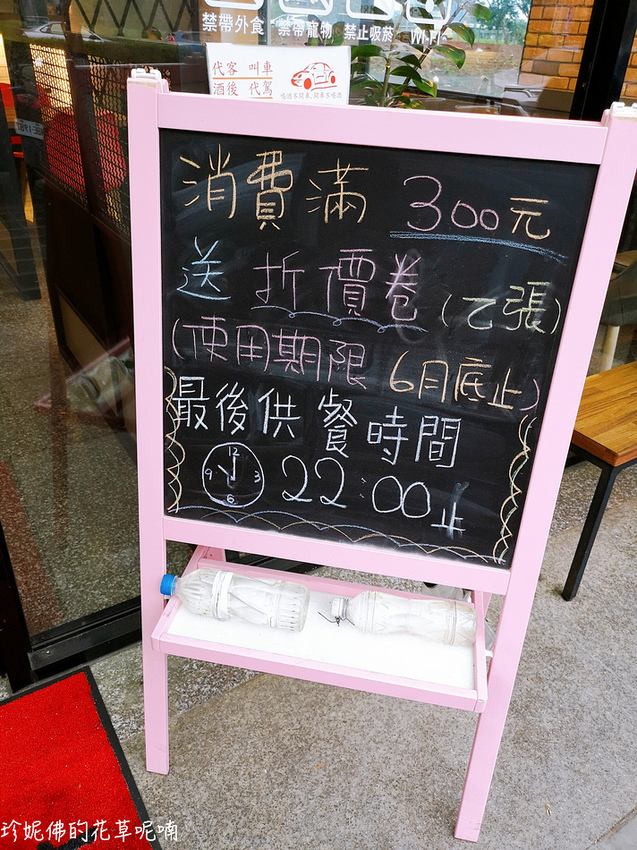 禁帶外食 禁帶寵物 禁止吸菸 Wi-Fi
代客 叫車
酒後 代駕
喝酒不開車,開車不喝酒
消費滿 300元
送 折價卷(乙張)
(使用期限 6月底止)
最後供餐時間
12
9 3
6
22:00止
珍妮佛的花草呢喃